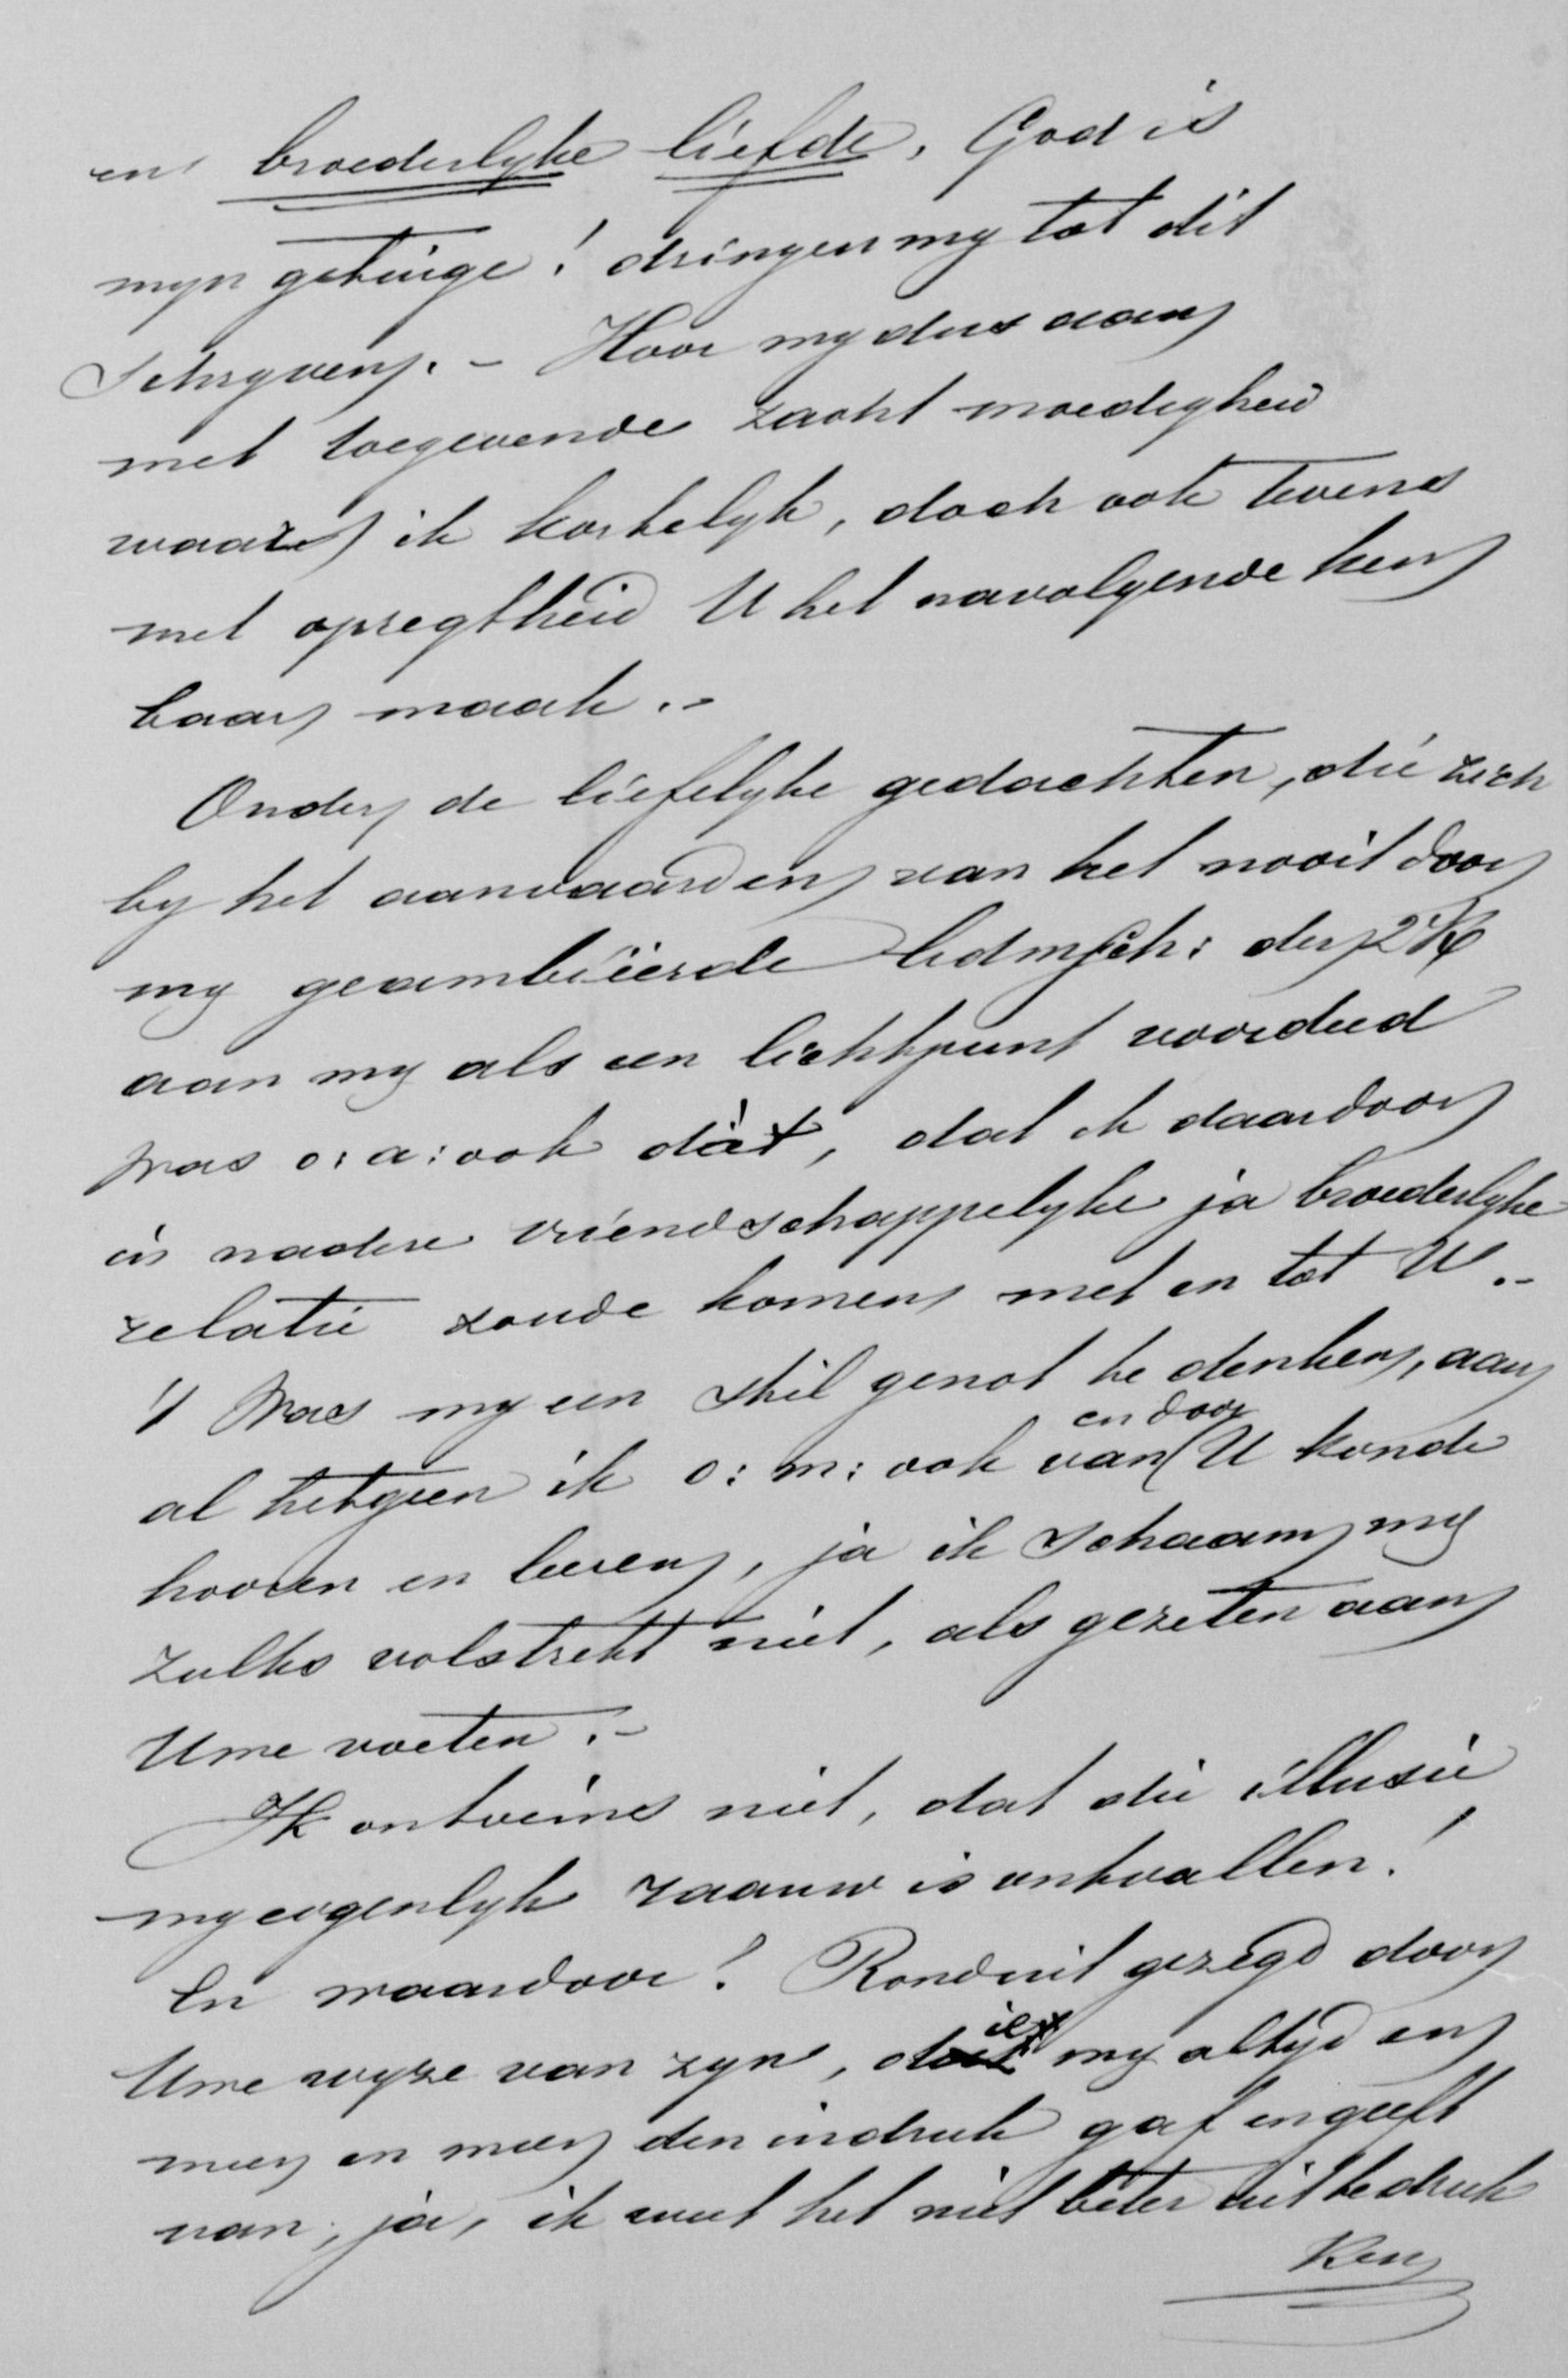 en broederlyke liefde, God is
myn getuige! dringen my tot dit
schryven. – Hoor my dus aan
met toegevende zachtmoedigheid
waar ik kortelyk, doch ook tevens
met opregtheid U het navolgende ken
baar maak. –
Onder de liefelyke gedachten, die zich
by het aanvaarden van het nooit door
my geambiëerde lidmsch: der 2e K
aan my als een lichtpunt voordeed
was o: a: ook dàt, dat ik daardoor
in nadere vriendschappelyke ja broederlyke
relatie zoude komen met en tot U. –
't Was my een stil genot te denken, aan
al hetgeen ik o: m: ook van en door U konde
hooren en leeren, ja ik schaam my
zulks volstrekt niet, als gezeten aan
Uwe voeten. –
Ik ontveins niet, dat die illusie
my eigenlyk raauw is ontvallen!
En waardoor? Ronduit gezegd door
Uwe wyze van zyn, die my altyd en
meer en meer den indruk gaf en geeft
van, ja, ik weet het niet beter uit te druk
ken